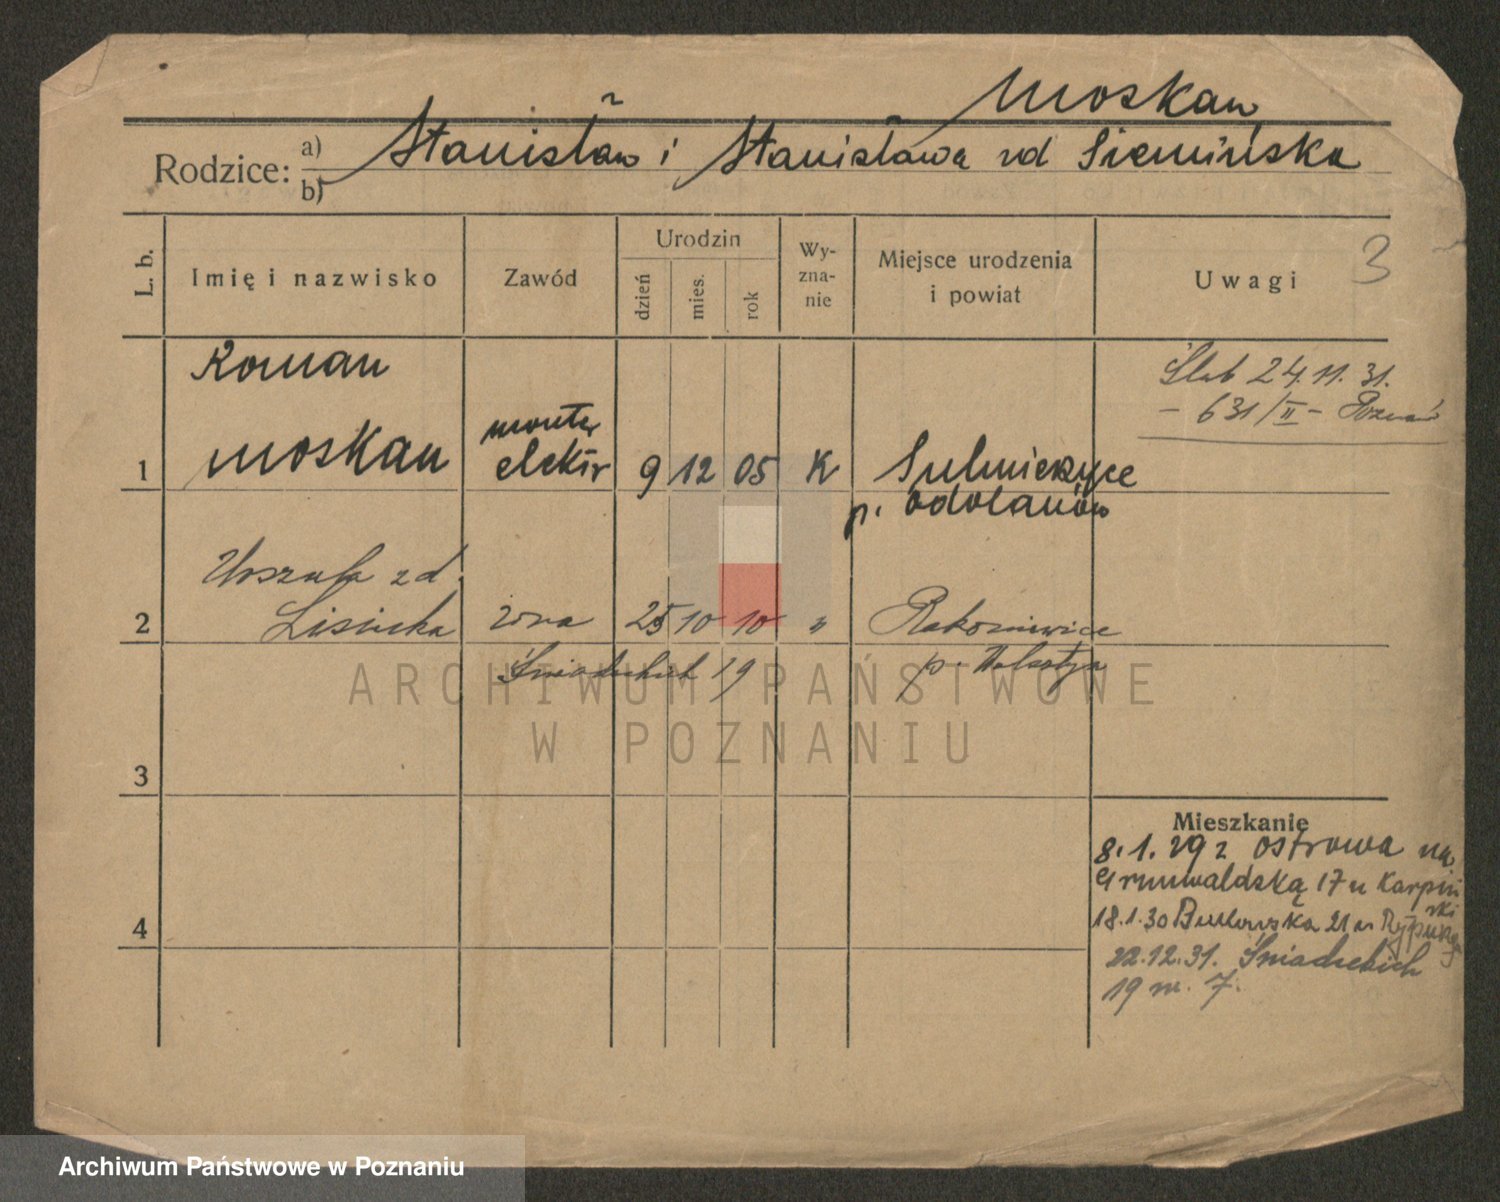 Moskaw
Rodzice: a) Stanisław i Stanisława zd Siemińska
b)
L. b.
Imię i nazwisko
Zawód
Urodzin
dzień
mies.
rok
Wy-
zna-
nie
Miejsce urodzenia
i powiat
Uwagi
3
Roman
Moskaw
1
monter
elektr
9 12 05 K
Sulmierzyce
p. Odolanów
Ślub 24.11.31.
- 631/II - Poznań
Urszula zd.
2 Lisiecka żona 25 10 10 " Rakoniewice
Śniadeckich 19 p. Wolsztyn
3
4
Mieszkanie
8.1.29 z Ostrowa na
Grunwaldską 17 u Karpiń
ski
18.1.30 Bukowska 21 u
22.12.31. Śniadeckich
19 m. 7.
ARCHIWUM PAŃSTWOWE
W POZNANIU
Archiwum Państwowe w Poznaniu